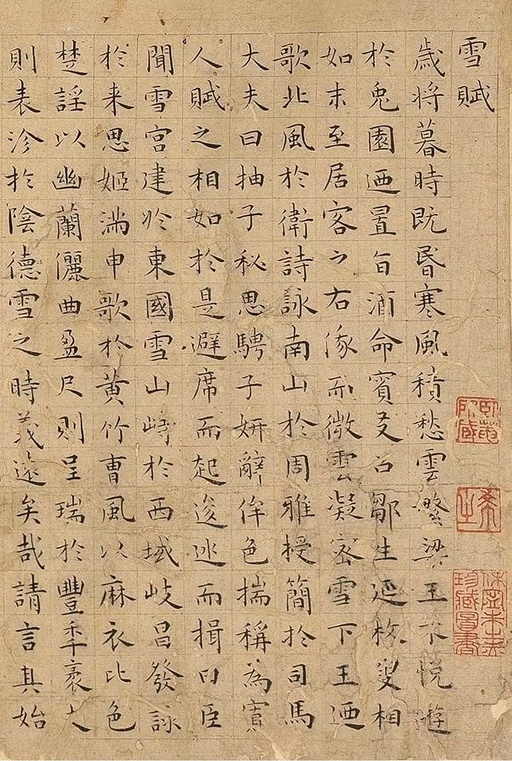 雪賦
歲将暮時既昏寒風積愁雲繁梁王不悅遊
於兎園迺置旨酒命賓友召鄒生延枚叟相
如末至居客之右俄而微雲凝密雪下王迺
歌北風於衛詩詠南山於周雅授簡於司馬
大夫曰抽子秘思騁子妍辭侔色揣稱為寡
人賦之相如於是避席而起逡巡而揖曰臣
聞雪宮建於東國雪山峙於西域岐昌發詠
於来思姬滿申歌於黄竹曹風以麻衣比色
楚謡以幽蘭儷曲盈尺則呈瑞於豐年袤丈
則表沴於陰德雪之時義遠矣哉請言其始
卧菴所藏